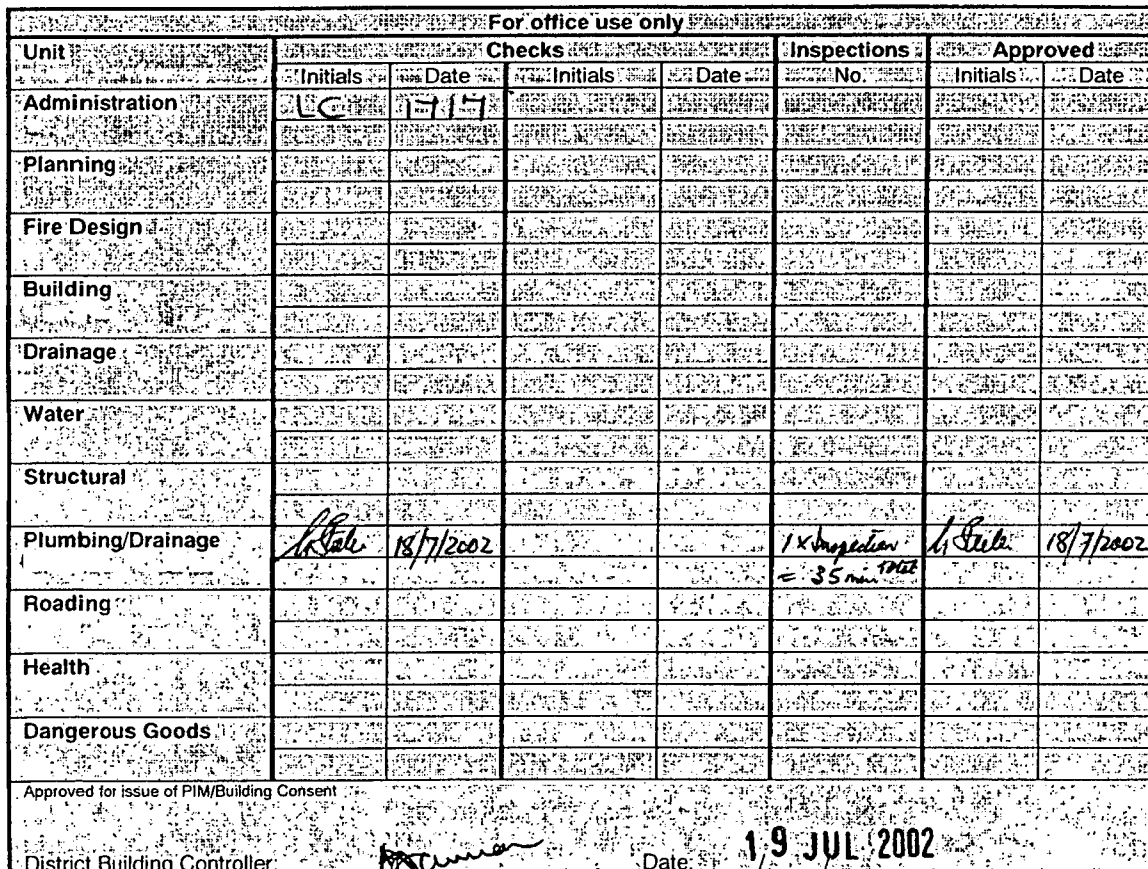 For office use only
Unit Checks Inspections Approved
Initials Date Initials Date No. Initials Date
Administration LC 17/7
Planning
Fire Design
Building
Drainage
Water
Structural
Plumbing/Drainage 18/7/2002 1 x Inspection 18/7/2002
= 35 min Total
Roading
Health
Dangerous Goods
Approved for issue of PIM/Building Consent
District Building Controller: Date: 19 JUL 2002